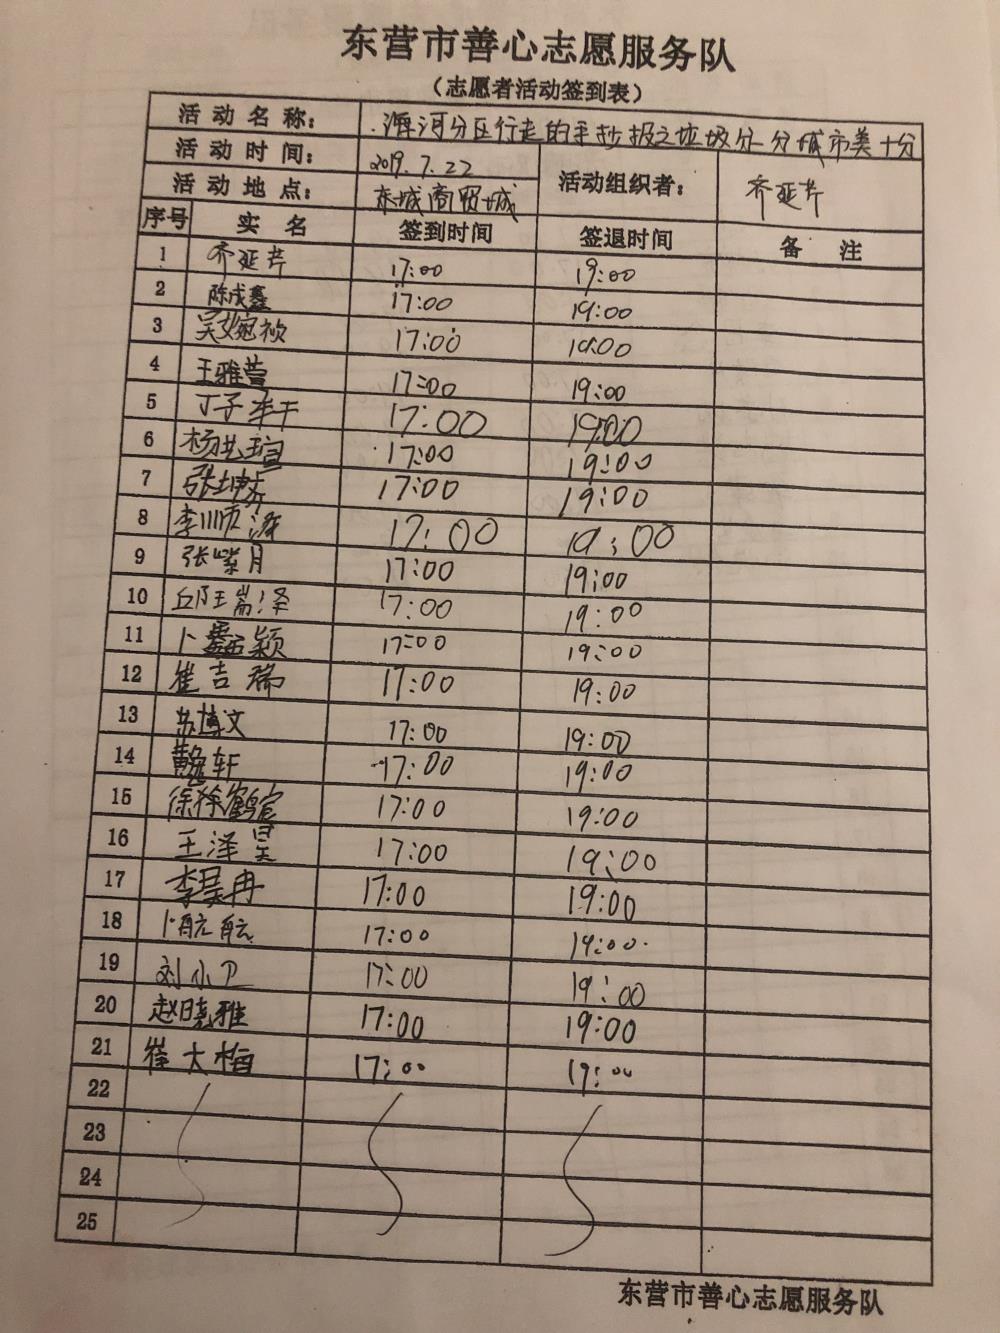 东营市善心志愿服务队
（志愿者活动签到表）
活动名称： 河分区行走的手抄报之垃圾分 分 城市美十分
活动时间： 2019.7.22 活动组织者： 齐延芹
活动地点： 东城商贸城
序号 实名 签到时间 签退时间 备注
1 齐延芹 17:00 19:00
2 陈成鑫 17:00 19:00
3 吴婉祯 17:00 19:00
4 王雅萱 17:00 19:00
5 丁子 17:00 19:00
6 杨 瑄 17:00 19:00
7 张坤 17:00 19:00
8 李顺泽 17:00 19:00
9 张紫月 17:00 19:00
10 邱 崙泽 17:00 19:00
11 卜 颖 17:00 19:00
12 崔吉瑞 17:00 19:00
13 苏博文 17:00 19:00
14 轩 17:00 19:00
15 徐 鹤宸 17:00 19:00
16 王泽昊 17:00 19:00
17 李昊冉 17:00 19:00
18 卜航航 17:00 19:00
19 刘小卫 17:00 19:00
20 赵晓雅 17:00 19:00
21 崔大梅 17:00 19:00
22
23
24
25
东营市善心志愿服务队